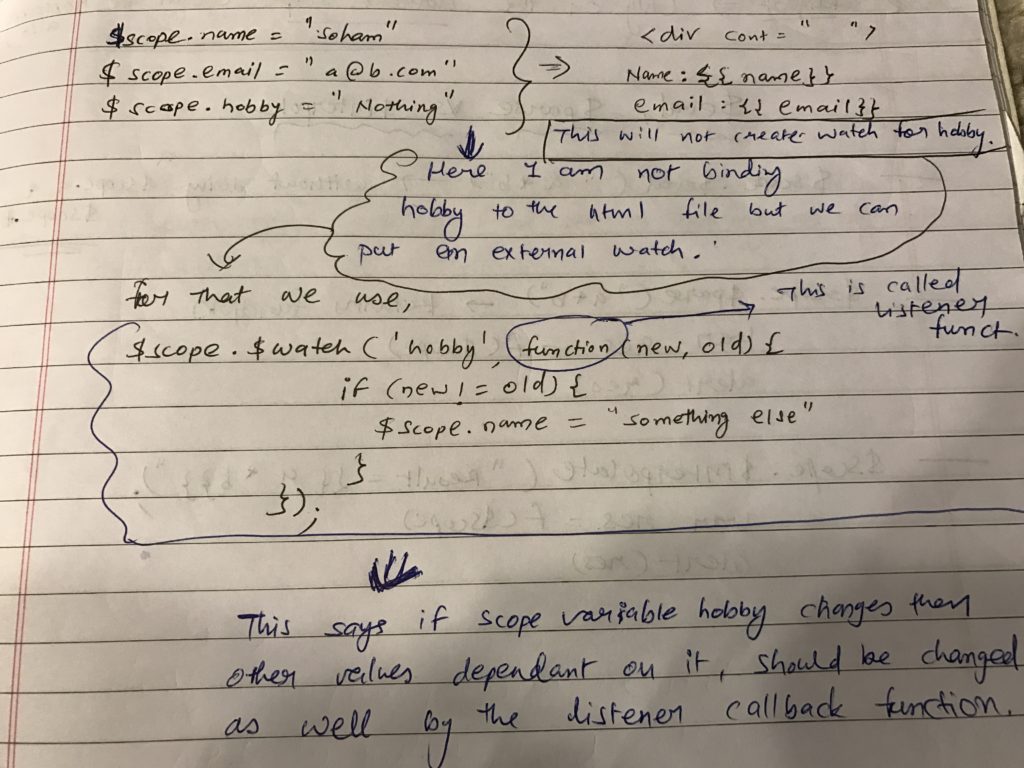 $scope.name = "soham"
$ scope.email = "a@b.com"
$ scope.hobby = "Nothing"
⇒
<div cont = "     ">
Name : {{ name}}
email : {{ email}}
This will not creater watch for hobby.
Here I am not binding
hobby to the html file but we can
put an external watch.
for that we use,
This is called
listener
funct.
$scope. $watch ('hobby', function (new, old) {
if (new != old) {
$scope.name = "something else"
}
});
This says if scope variable hobby changes then
other values dependant on it, should be changed
as well by the listener callback function.